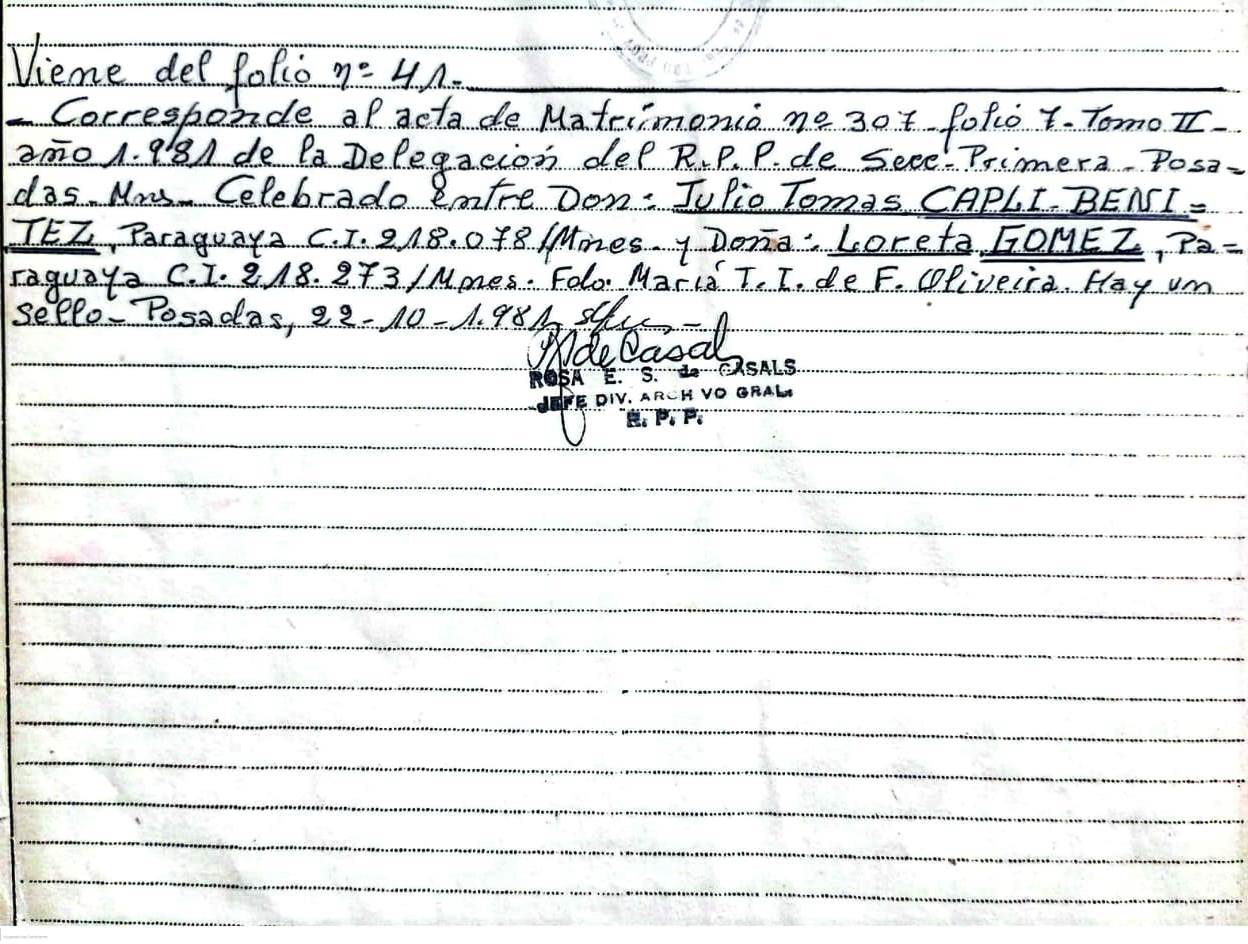 Viene del folio nº 41.
- Corresponde al acta de Matriímonio nº 307-folio 7-Tomo II-
año 1.981 de la Delegación del R.P.P. de Secc-Primera-Posa-
das-Mns- Celebrado entre Don: Julio Tomas CAPLI-BENI=
TEZ, Paraguaya C.I. 218.078/Mnes- y Doña: Loreta GOMEZ, Pa=
raguaya C.I. 218.273/Mnes. Fdo. Maria T.I. de F. Oliveira. Hay um
sello- Posadas, 22-10-1.981
de Casals
ROSA E. S. de CASALS
JEFE DIV. ARCH VO GRAL.
R. P. P.